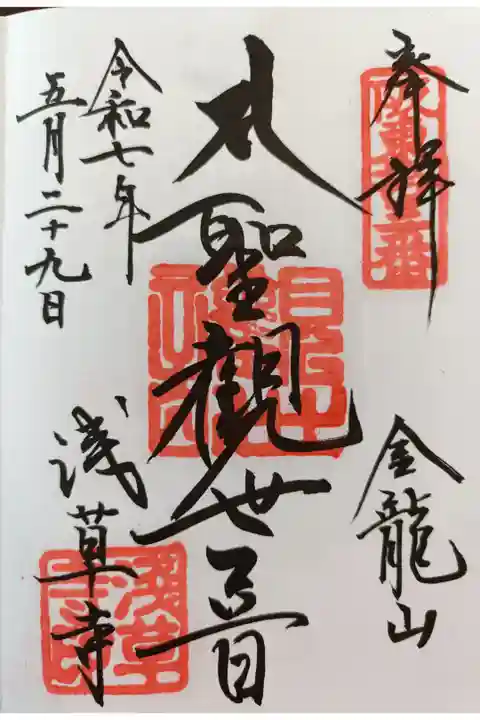 奉拝
金龍山
聖觀世音
令和七年
五月二十九日
浅草寺